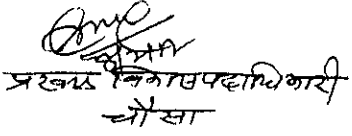 प्रखण्ड विकास पदाधिकारी
चौसा